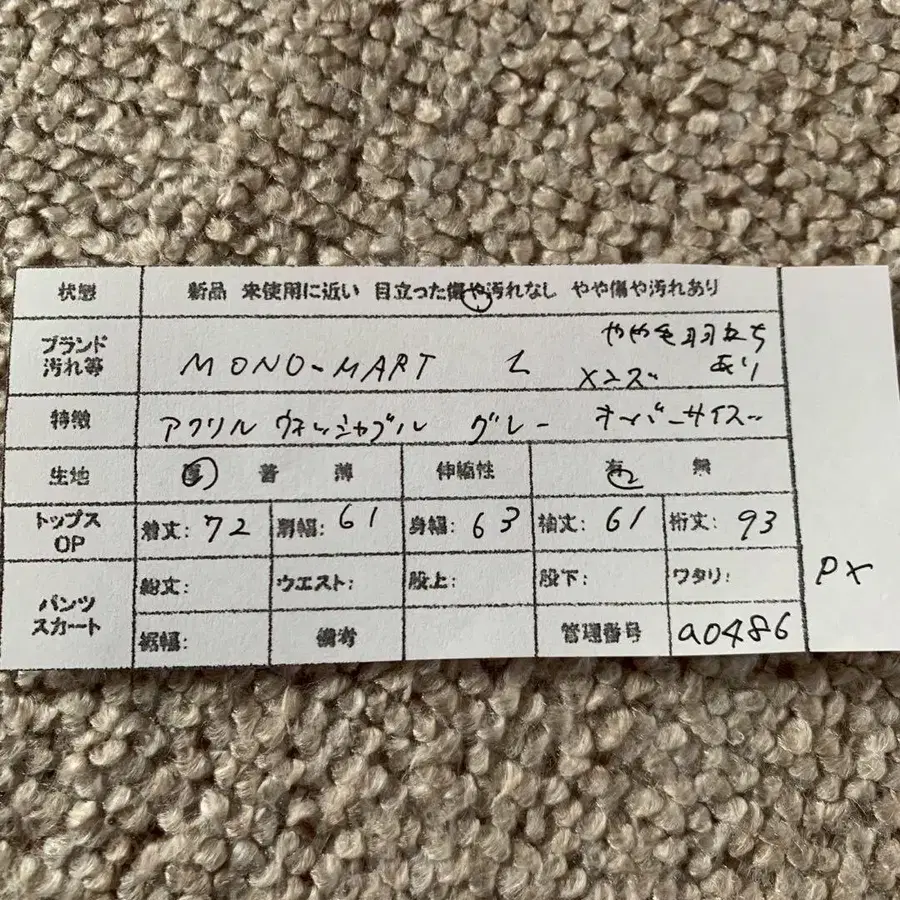 状態 新品 未使用に近い 目立った傷や汚れなし やや傷や汚れあり
ブランド
汚れ等
MONO-MART L メンズ
やや毛羽立ち
あり
特徴 アクリル ウォッシャブル グレー オーバーサイズ
生地 厚 普 薄 伸縮性 有 無
トップス
OP
着丈: 72 肩幅: 61 身幅: 63 袖丈: 61 裄丈: 93
パンツ
スカート
総丈: ウエスト: 股上: 股下: ワタリ:
裾幅: 備考 管理番号 a0486
PX